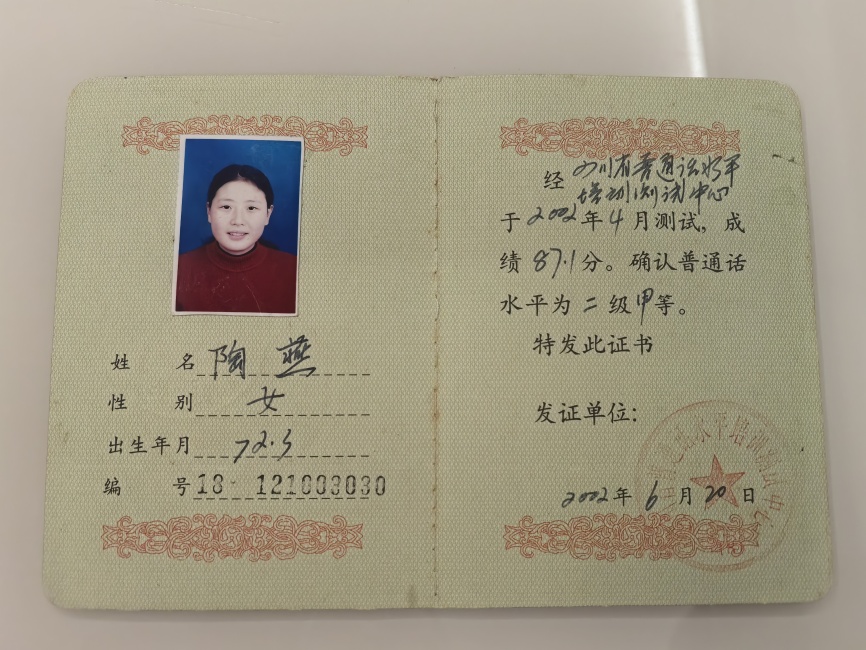 姓 名 陶燕
性 别 女
出生年月 72.3
编 号 18 121003030
经 四川省普通话水平
培训测试中心
于2002年4月测试，成
绩87.1分。确认普通话
水平为二级甲等。
特发此证书
发证单位：
水平培训测试中心
2002年6月20日